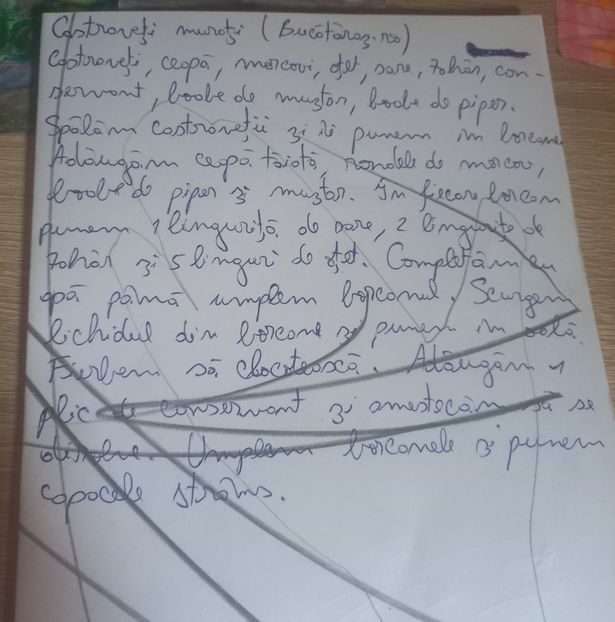 Castraveți murați (Bucătăraz.ro)
Castraveți, ceapă, morcovi, oțet, sare, zahăr, con-
servant, boabe de muștar, boabe de piper.
Spălăm castraveții și îi punem în borcane.
Adăugăm ceapă tăiată, rondele de morcov,
boabe de piper și muștar. În fiecare borcan
punem 1 linguriță de sare, 2 lingurițe de
zahăr și 5 linguri de oțet. Completăm cu
apă până umplem borcanul. Scurgem
lichidul din borcane și punem în oală.
Fierbem să clocotească. Adăugăm 1
plic de conservant și amestecăm să se
dizolve. Umplem borcanele și punem
capacele strâns.